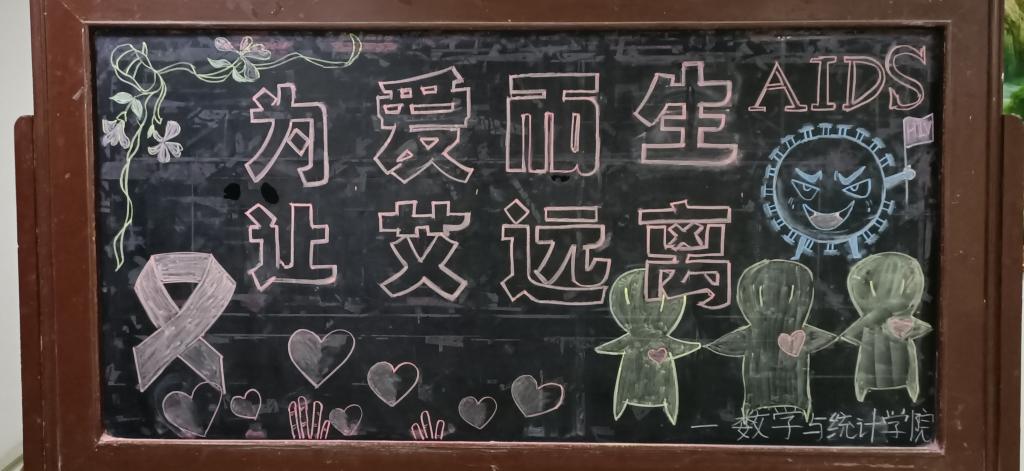 为爱而生
AIDS
HIV
让艾远离
一数学与统计学院